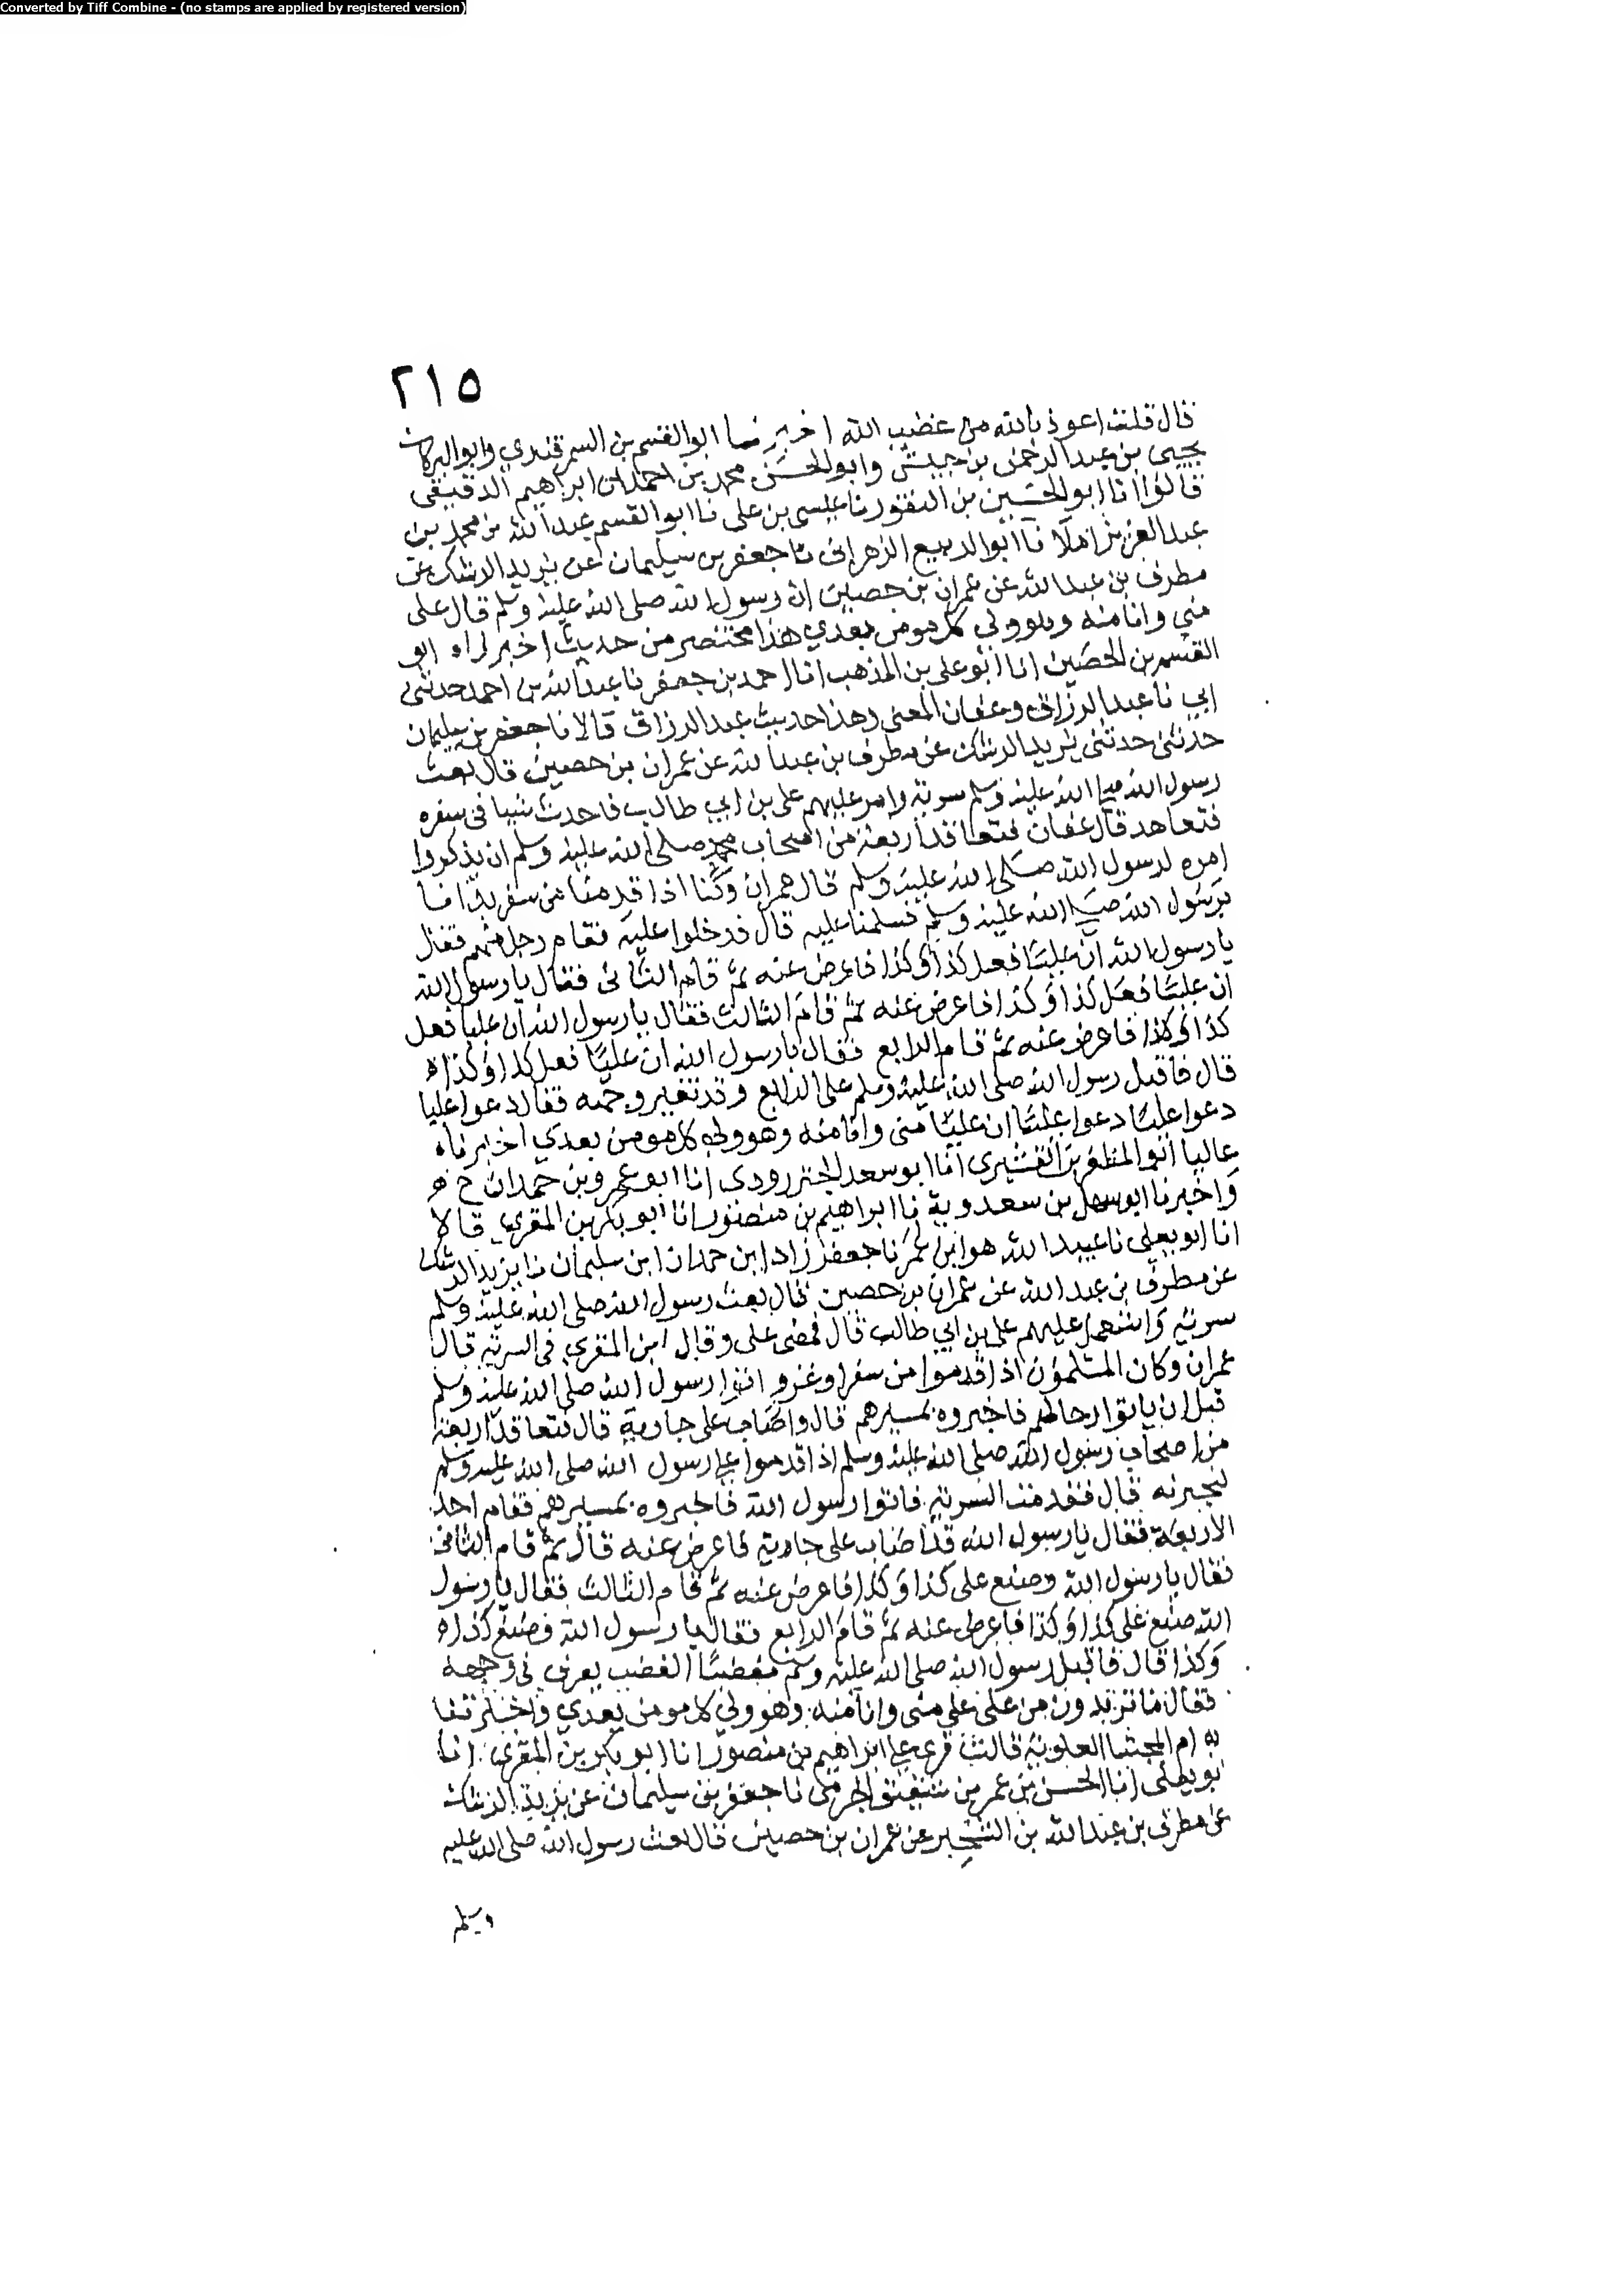 Converted by Tiff Combine - (no stamps are applied by registered version)
٢١٥
قال قلت اعوذ بالله من غضب الله اخبرنا ابو القسم بن السمرقندي وابو البركات
يحيى بن عبد الرحمن بن حبيش وابو الحسن محمد بن احمد بن ابراهيم الدقيقي
قالوا انا ابو الحسين بن النقور نا عيسى بن علي نا ابو القسم عبد الله بن محمد بن
عبد العزيز املا نا ابو الربيع الزهراني نا جعفر بن سليمان عن يزيد الرشك عن
مطرف بن عبد الله عن عمران بن حصين ان رسول الله صلى الله عليه وسلم قال علي
مني وانا منه وهو ولي كل مومن بعدي هذا مختصر من حديث اخبرناه ابو
القسم بن الحصين انا ابو علي بن المذهب انا احمد بن جعفر نا عبد الله بن احمد حدثني
ابي نا عبد الرزاق وعفان المعنى وهذا حديث عبد الرزاق قالا نا جعفر بن سليمان
حدثني حدثني يزيد الرشك عن مطرف بن عبد الله عن عمران بن حصين قال بعث
رسول الله صلى الله عليه وسلم سرية وامر عليهم علي بن ابي طالب فاحدث شيا في سفره
فتعاهد قال عفان فتعاقد اربعة من اصحاب محمد صلى الله عليه وسلم ان يذكروا
امره لرسول الله صلى الله عليه وسلم قال عمران وكنا اذا قدمنا من سفر بدانا
برسول الله صلى الله عليه وسلم فسلمنا عليه قال فدخلوا عليه فقام رجل منهم فقال
يا رسول الله ان عليا فعل كذا وكذا فاعرض عنه ثم قام الثاني فقال يا رسول الله
ان عليا فعل كذا وكذا فاعرض عنه ثم قام الثالث فقال يا رسول الله ان عليا فعل
كذا وكذا فاعرض عنه ثم قام الرابع فقال يا رسول الله ان عليا فعل كذا وكذا
قال فاقبل رسول الله صلى الله عليه وسلم على الرابع وقد تغير وجهه فقال دعوا عليا
دعوا عليا دعوا عليا ان عليا مني وانا منه وهو ولي كل مومن بعدي اخبرناه
عاليا ابو المظفر بن القشيري انا ابو سعد الجنزرودي انا ابو عمرو بن حمدان ح
واخبرنا ابو سهل بن سعدوية نا ابراهيم بن منصور انا ابو بكر بن المقري قالا
انا ابو يعلى نا عبيد الله هو ابن عمر نا جعفر زاد ابن حمدان ابن سليمان نا يزيد الرشك
عن مطرف بن عبد الله عن عمران بن حصين قال بعث رسول الله صلى الله عليه وسلم
سرية واستعمل عليهم علي بن ابي طالب قال فمضى علي وقال ابن المقري في السرية قال
عمران وكان المسلمون اذا قدموا من سفر او غزو اتوا رسول الله صلى الله عليه وسلم
قبل ان ياتوا رحالهم فاخبروه بمسيرهم قال واصاب علي جارية قال فتعاقد اربعة
من اصحاب رسول الله صلى الله عليه وسلم اذا قدموا على رسول الله صلى الله عليه وسلم
ليخبرنه قال فقدمت السرية فاتوا رسول الله فاخبروه بمسيرهم فقام احد
الاربعة فقال يا رسول الله قد اصاب علي جارية فاعرض عنه قال ثم قام الثاني
فقال يا رسول الله وصنع علي كذا وكذا فاعرض عنه ثم قام الثالث فقال يا رسول
الله صنع علي كذا وكذا فاعرض عنه ثم قام الرابع فقال يا رسول الله فصنع كذا
وكذا قال فاقبل رسول الله صلى الله عليه وسلم مغضبا الغضب يعرف في وجهه
فقال ما تريدون من علي علي مني وانا منه وهو ولي كل مومن بعدي واخبرتنا
به ام المجتبا العلوية قالت قرى على ابراهيم بن منصور انا ابو بكر بن المقري انا
ابو يعلى انا الحسن بن عمر بن شقيق الجرمي نا جعفر بن سليمان عن يزيد الرشك
عن مطرف بن عبد الله بن الشخير عن عمران بن حصين قال بعث رسول الله صلى الله عليه
وسلم